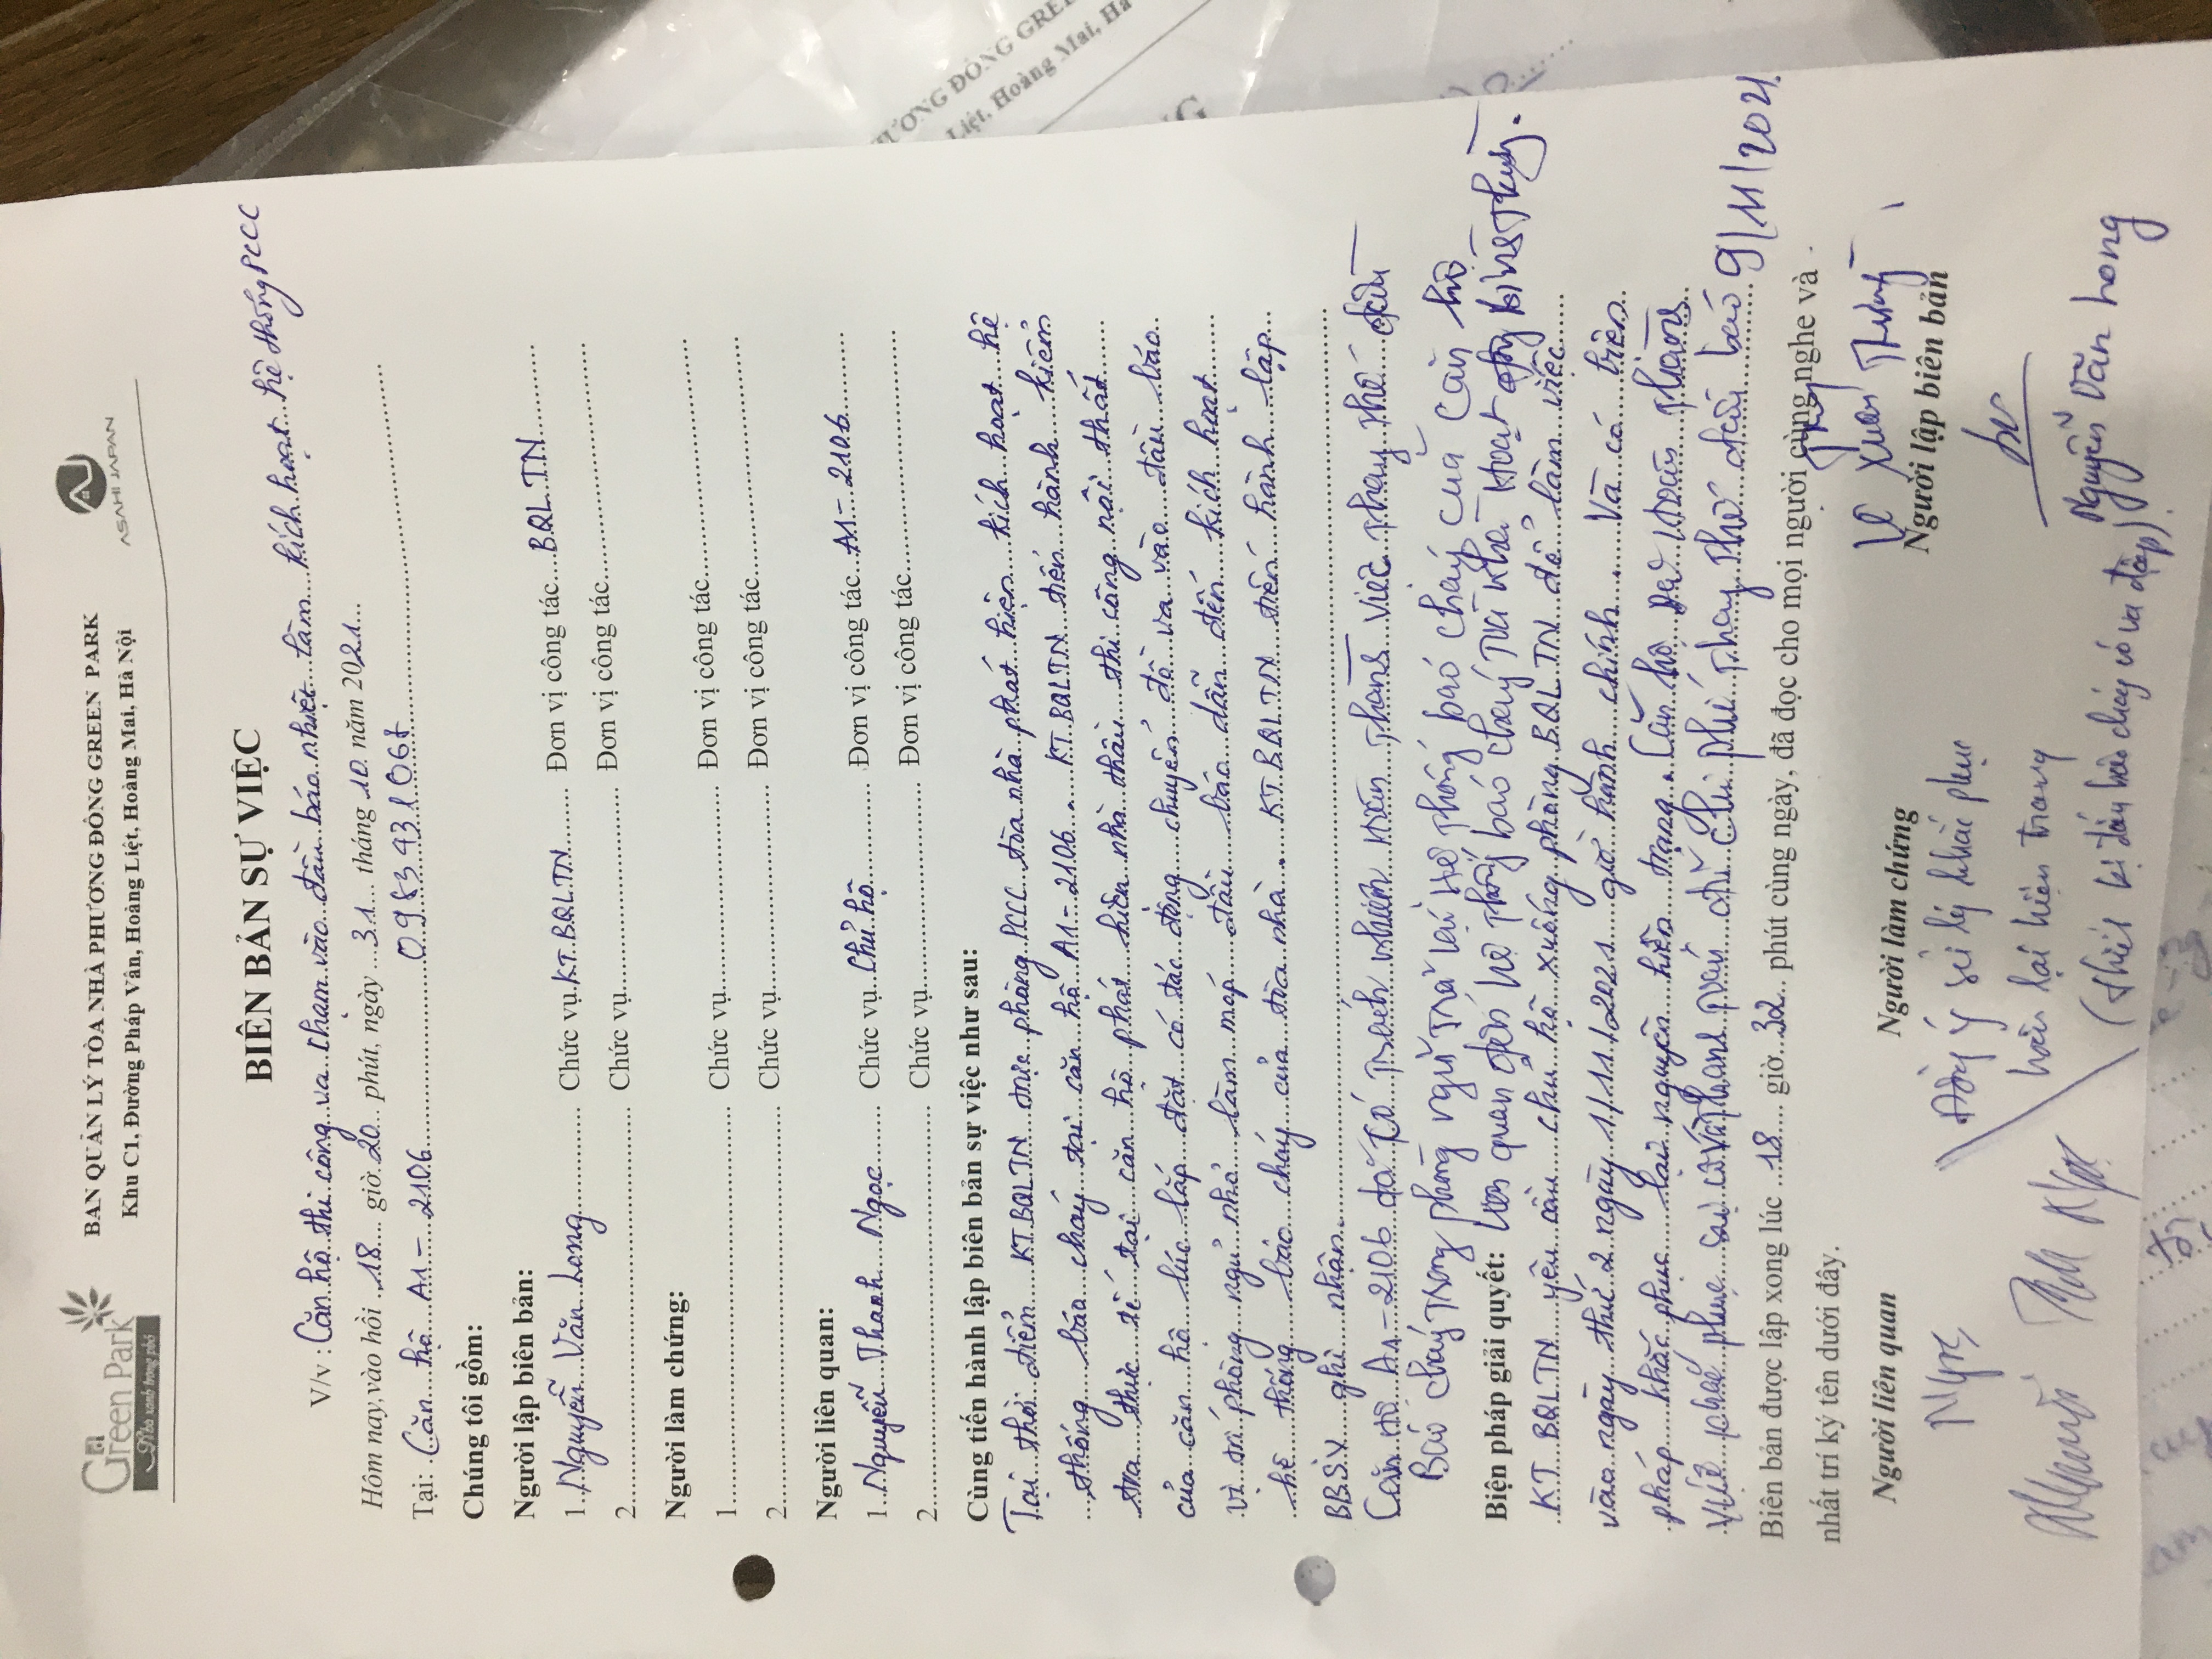 Green Park
Nhà xanh trong phố
BAN QUẢN LÝ TÒA NHÀ PHƯƠNG ĐÔNG GREEN PARK
Khu C1, Đường Pháp Vân, Hoàng Liệt, Hoàng Mai, Hà Nội
ASAHI JAPAN
BIÊN BẢN SỰ VIỆC
V/v : Căn hộ thi công va chạm vào đầu báo nhiệt làm kích hoạt hệ thống PCCC
Hôm nay,vào hồi 18 giờ 20 phút, ngày 31 tháng 10 năm 2021
Tại: Căn hộ A1 - 2106 0983431068
Chúng tôi gồm:
Người lập biên bản:
1. Nguyễn Văn Long Chức vụ KT BQLTN Đơn vị công tác BQL TN
2. Chức vụ Đơn vị công tác
Người làm chứng:
1. Chức vụ Đơn vị công tác
2. Chức vụ Đơn vị công tác
Người liên quan:
1. Nguyễn Thanh Ngọc Chức vụ Chủ hộ Đơn vị công tác A1 - 2106
2. Chức vụ Đơn vị công tác
Cùng tiến hành lập biên bản sự việc như sau:
Tại thời điểm KT BQLTN trực phòng PCCC tòa nhà phát hiện kích hoạt hệ
thống báo cháy tại căn hộ A1-2106. KT BQLTN tiến hành kiểm
tra thực tế tại căn hộ phát hiện nhà thầu thi công nội thất
của căn hộ lúc lắp đặt có tác động chuyển đồ va vào đầu báo
vị trí phòng ngủ nhỏ làm móp đầu báo dẫn đến kích hoạt
hệ thống báo cháy của tòa nhà. KT BQLTN tiến hành lập
BBSV ghi nhận.
Căn hộ A1-2106 đã có trách nhiệm hoàn thành việc thay thế đầu
Báo cháy trong phòng ngủ trả lại hệ thống báo cháy của căn hộ
Biện pháp giải quyết: liên quan đến hệ thống báo cháy toà nhà hoạt động bình thường.
KT BQLTN yêu cầu chủ hộ xuống phòng BQL TN để làm việc
vào ngày thứ 2 ngày 1/11/2021 giờ hành chính. Và có biện
pháp khắc phục lại nguyên hiện trạng. Căn hộ đã hoàn thành
việc khắc phục sự cố và thanh toán đủ chi phí thay thế đầu báo 9/11/2021.
Biên bản được lập xong lúc 18 giờ 32 phút cùng ngày, đã đọc cho mọi người cùng nghe và
nhất trí ký tên dưới đây.
Người liên quan
Người làm chứng
Người lập biên bản
Ngọc
Đồng ý sử lý khắc phục
hoàn lại hiện trạng
(thiết bị đầu báo cháy có va đập)
Nguyễn Văn Long